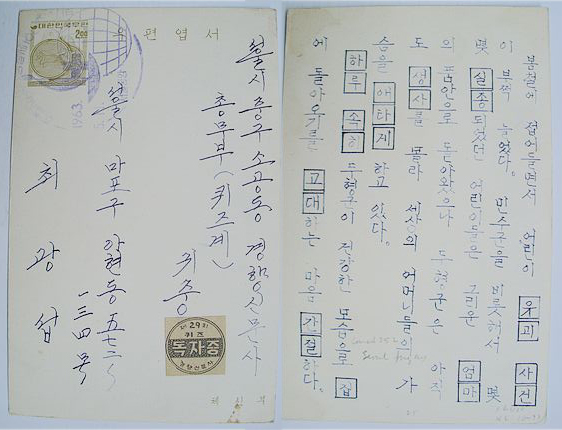 대한민국우편
2.00
우편엽서
1963
서울시 중구 소공동 경향신문사
총무부 (퀴즈계)
귀중
서울시 마포구 아현동 五七二
一三四号
최광섭
제29회
퀴즈
독자증
경향신문사
체신부
봄철에 접어들면서 어린이 유괴 사건
이 부쩍 늘었다. 만수군을 비롯해서 몇
몇 실종되었던 어린이들은 그리운 엄마
의 품안으로 돌아왔으나 두형군은 아직
도 생사를 몰라 세상의 어머니들이 가
슴을 애타게 하고 있다.
하루 속히 두형군이 건강한 모습으로 집
에 돌아오기를 고대하는 마음 간절하다.